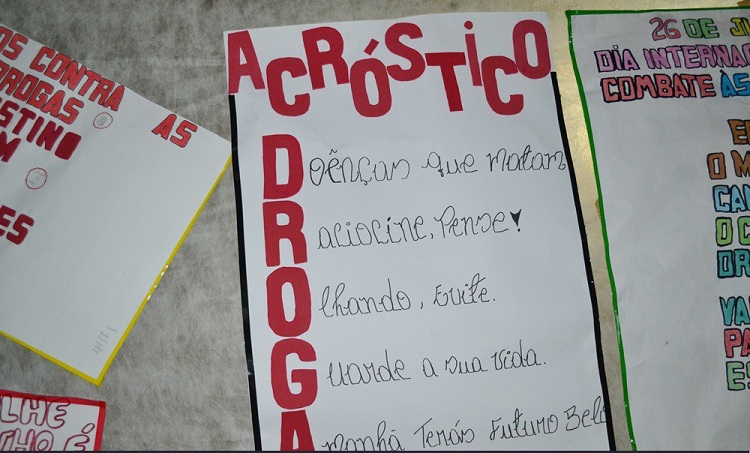 OS CONTRA
DROGAS AS
STINO
M
ES
4151
LHE
HO É
ACRÓSTICO
DOÊNÇAS que matam
Raciocine, Pense!
Olhando, Evite.
Guarde a sua vida.
Amanhã Terás Futuro Belo
26 DE JU
DIA INTERNA
COMBATE ÀS
E
O M
CA
O C
DR
VA
PA
ES